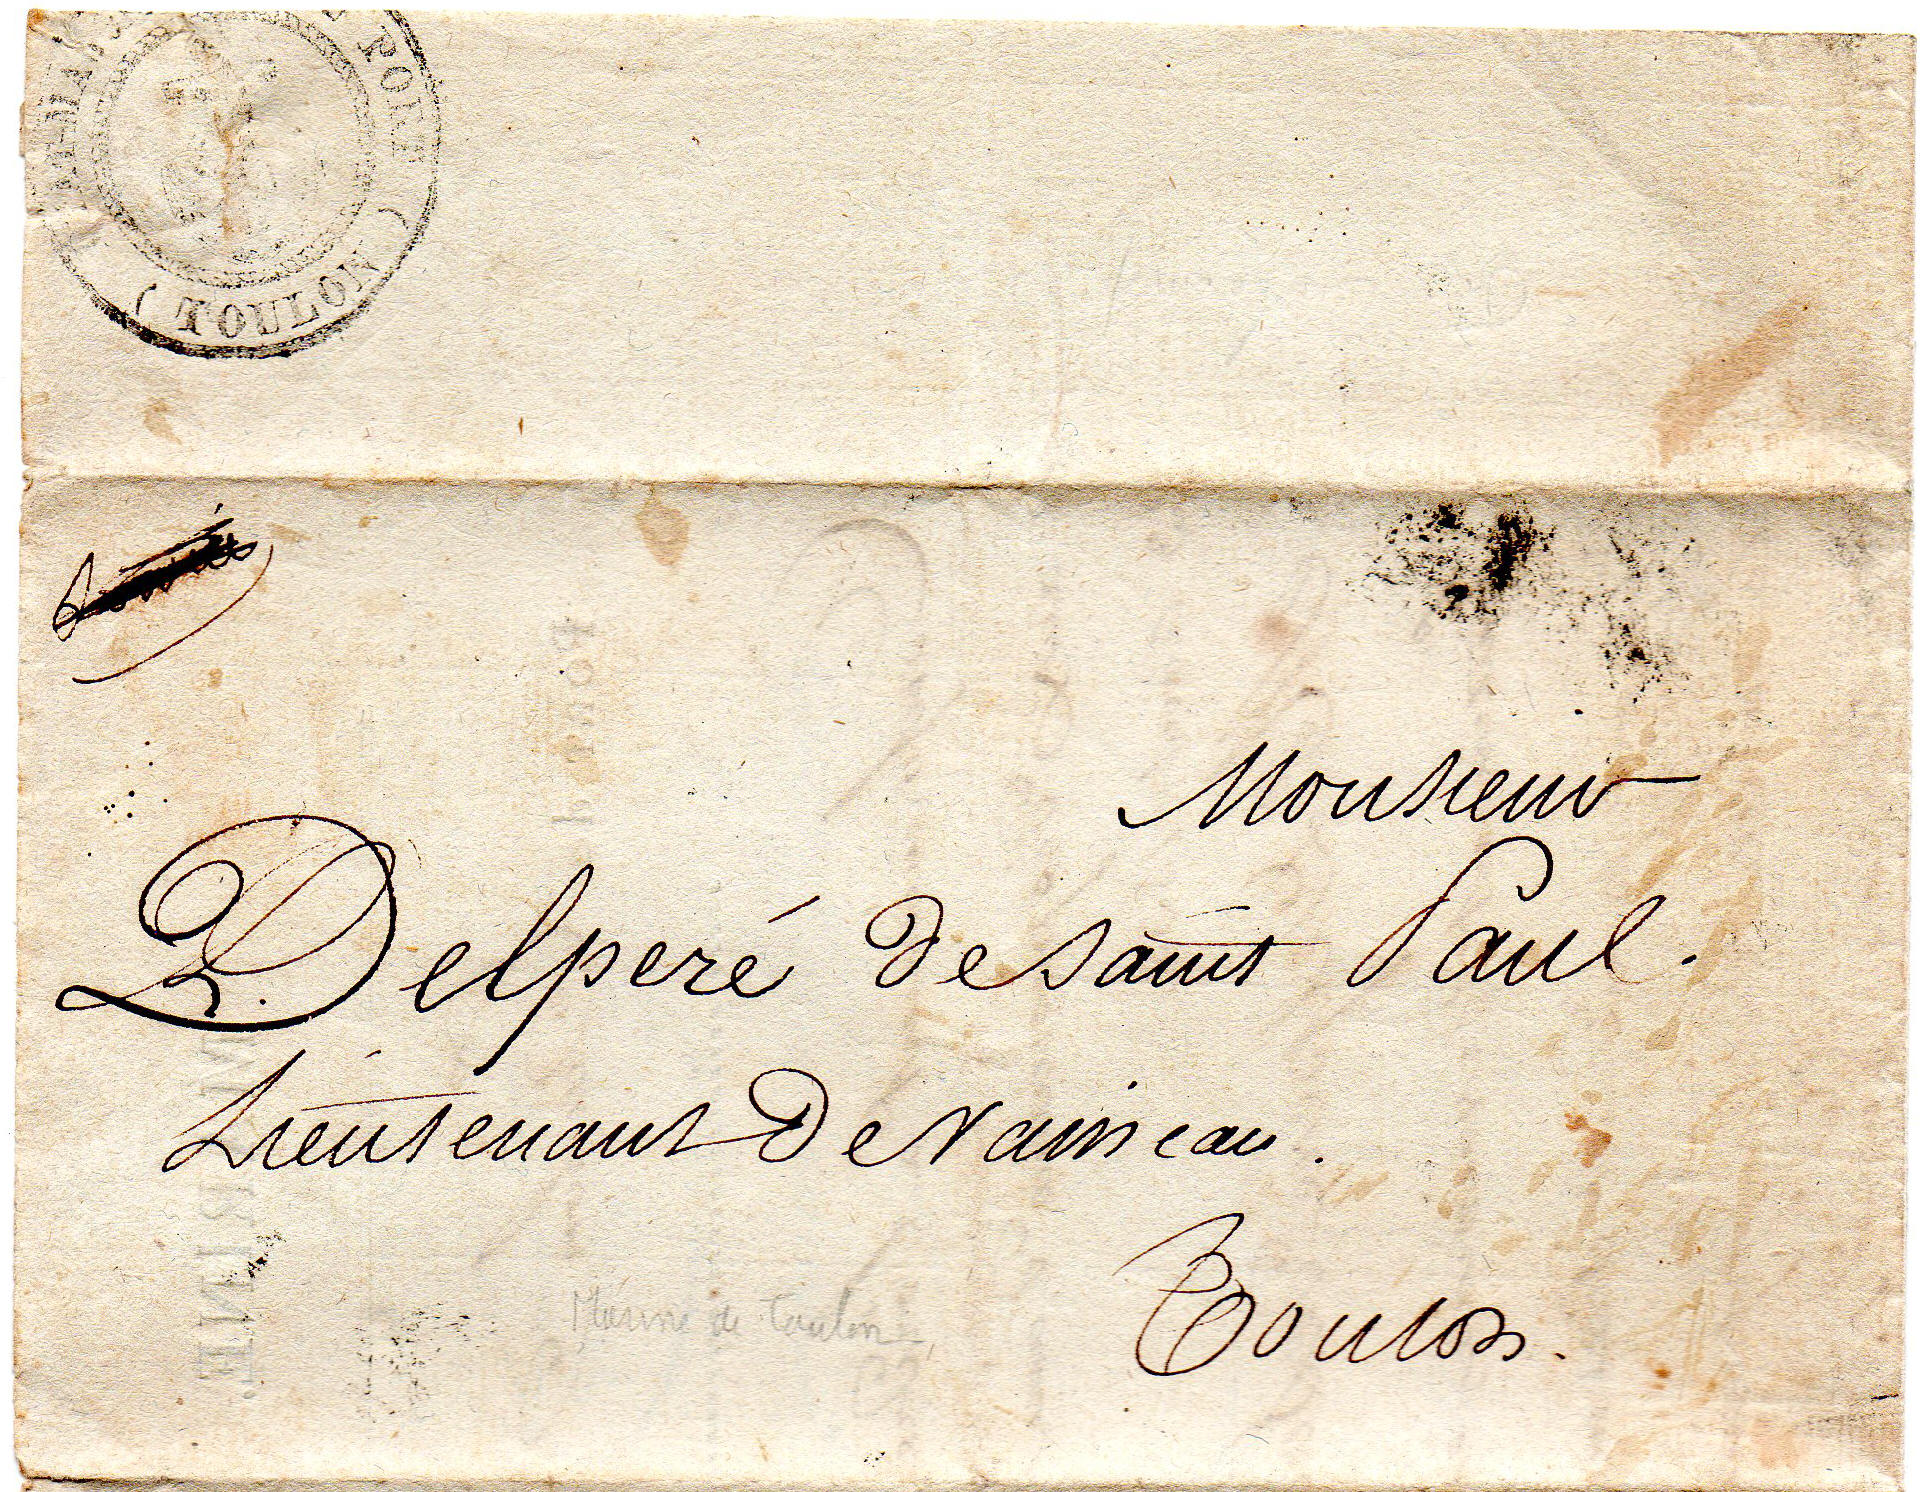 PORT
( TOULON )
Monsieur
Delperé de Saint Paul.
Lieutenant de Vaisseau.
Marine de Toulon
Toulon.